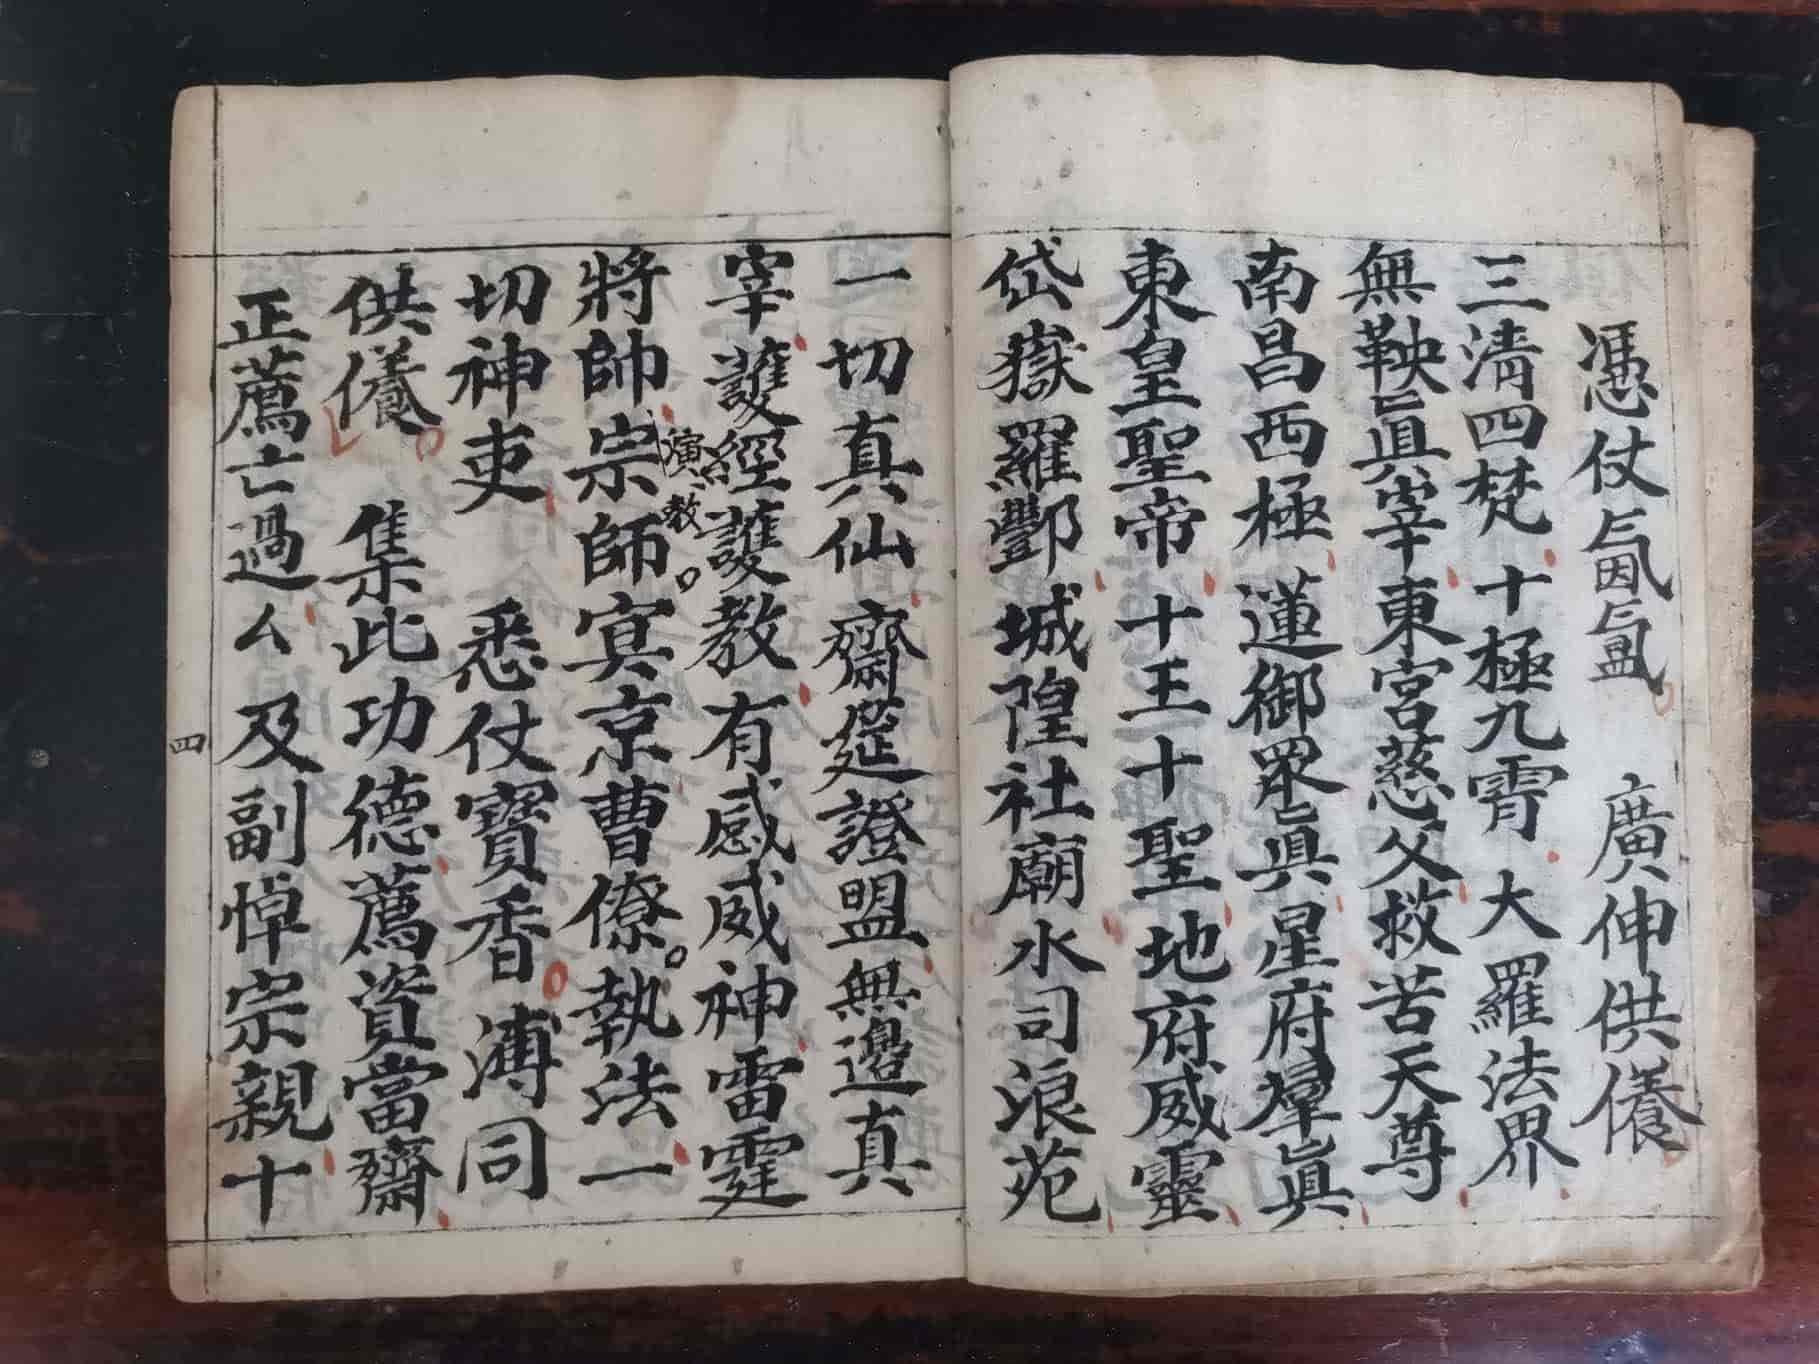 憑仗氤氳　廣伸供養
三清四梵十極九霄大羅法界
無鞅眞宰東宮慈父救苦天尊
南昌西極蓮御眾眞星府羣眞
東皇聖帝十王十聖地府威靈
岱嶽羅酆城隍社廟水司浪苑
一切真仙齋筵證盟無邊真
宰護經護教有感威神雷霆
將帥宗師演教冥京曹僚執法一
切神吏　悉仗寶香溥同
供養　集此功德薦資當齋
正薦亡過厶及副悼宗親十
四